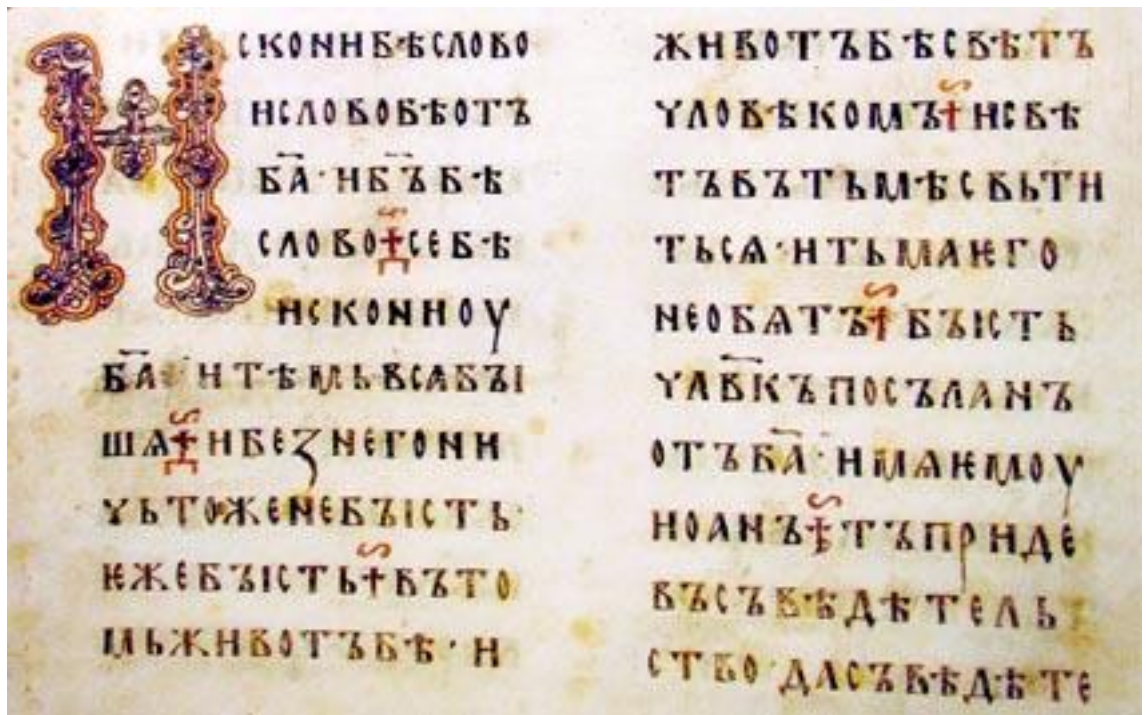 Исконибѣслово
исловобѣотъ
б҃а·иб҃ъбѣ
слово†себѣ
исконноу
б҃а·итѣмьвсабꙑ
шѧ†ибезнегони
чьтоженебꙑсть
ѥжебꙑсть†въто
мьживотъбѣ·и
животъбѣсвѣтъ
чловѣкомъ†исвѣ
тъвътьмѣсвьти
тьсѧ·итьмаѥго
необѧтъ†бꙑсть
члв҃къпосъланъ
отъб҃а·имѧѥмоу
иоанъ†тъприде
въсъвѣдѣтель
ство·дасъвѣдѣте